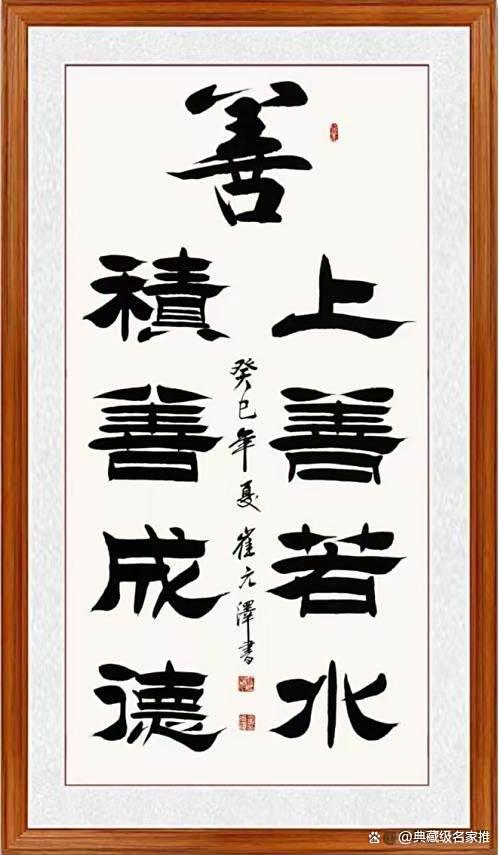 善
上善若水
積善成德
癸巳年夏崔元澤書
@典藏级名家推